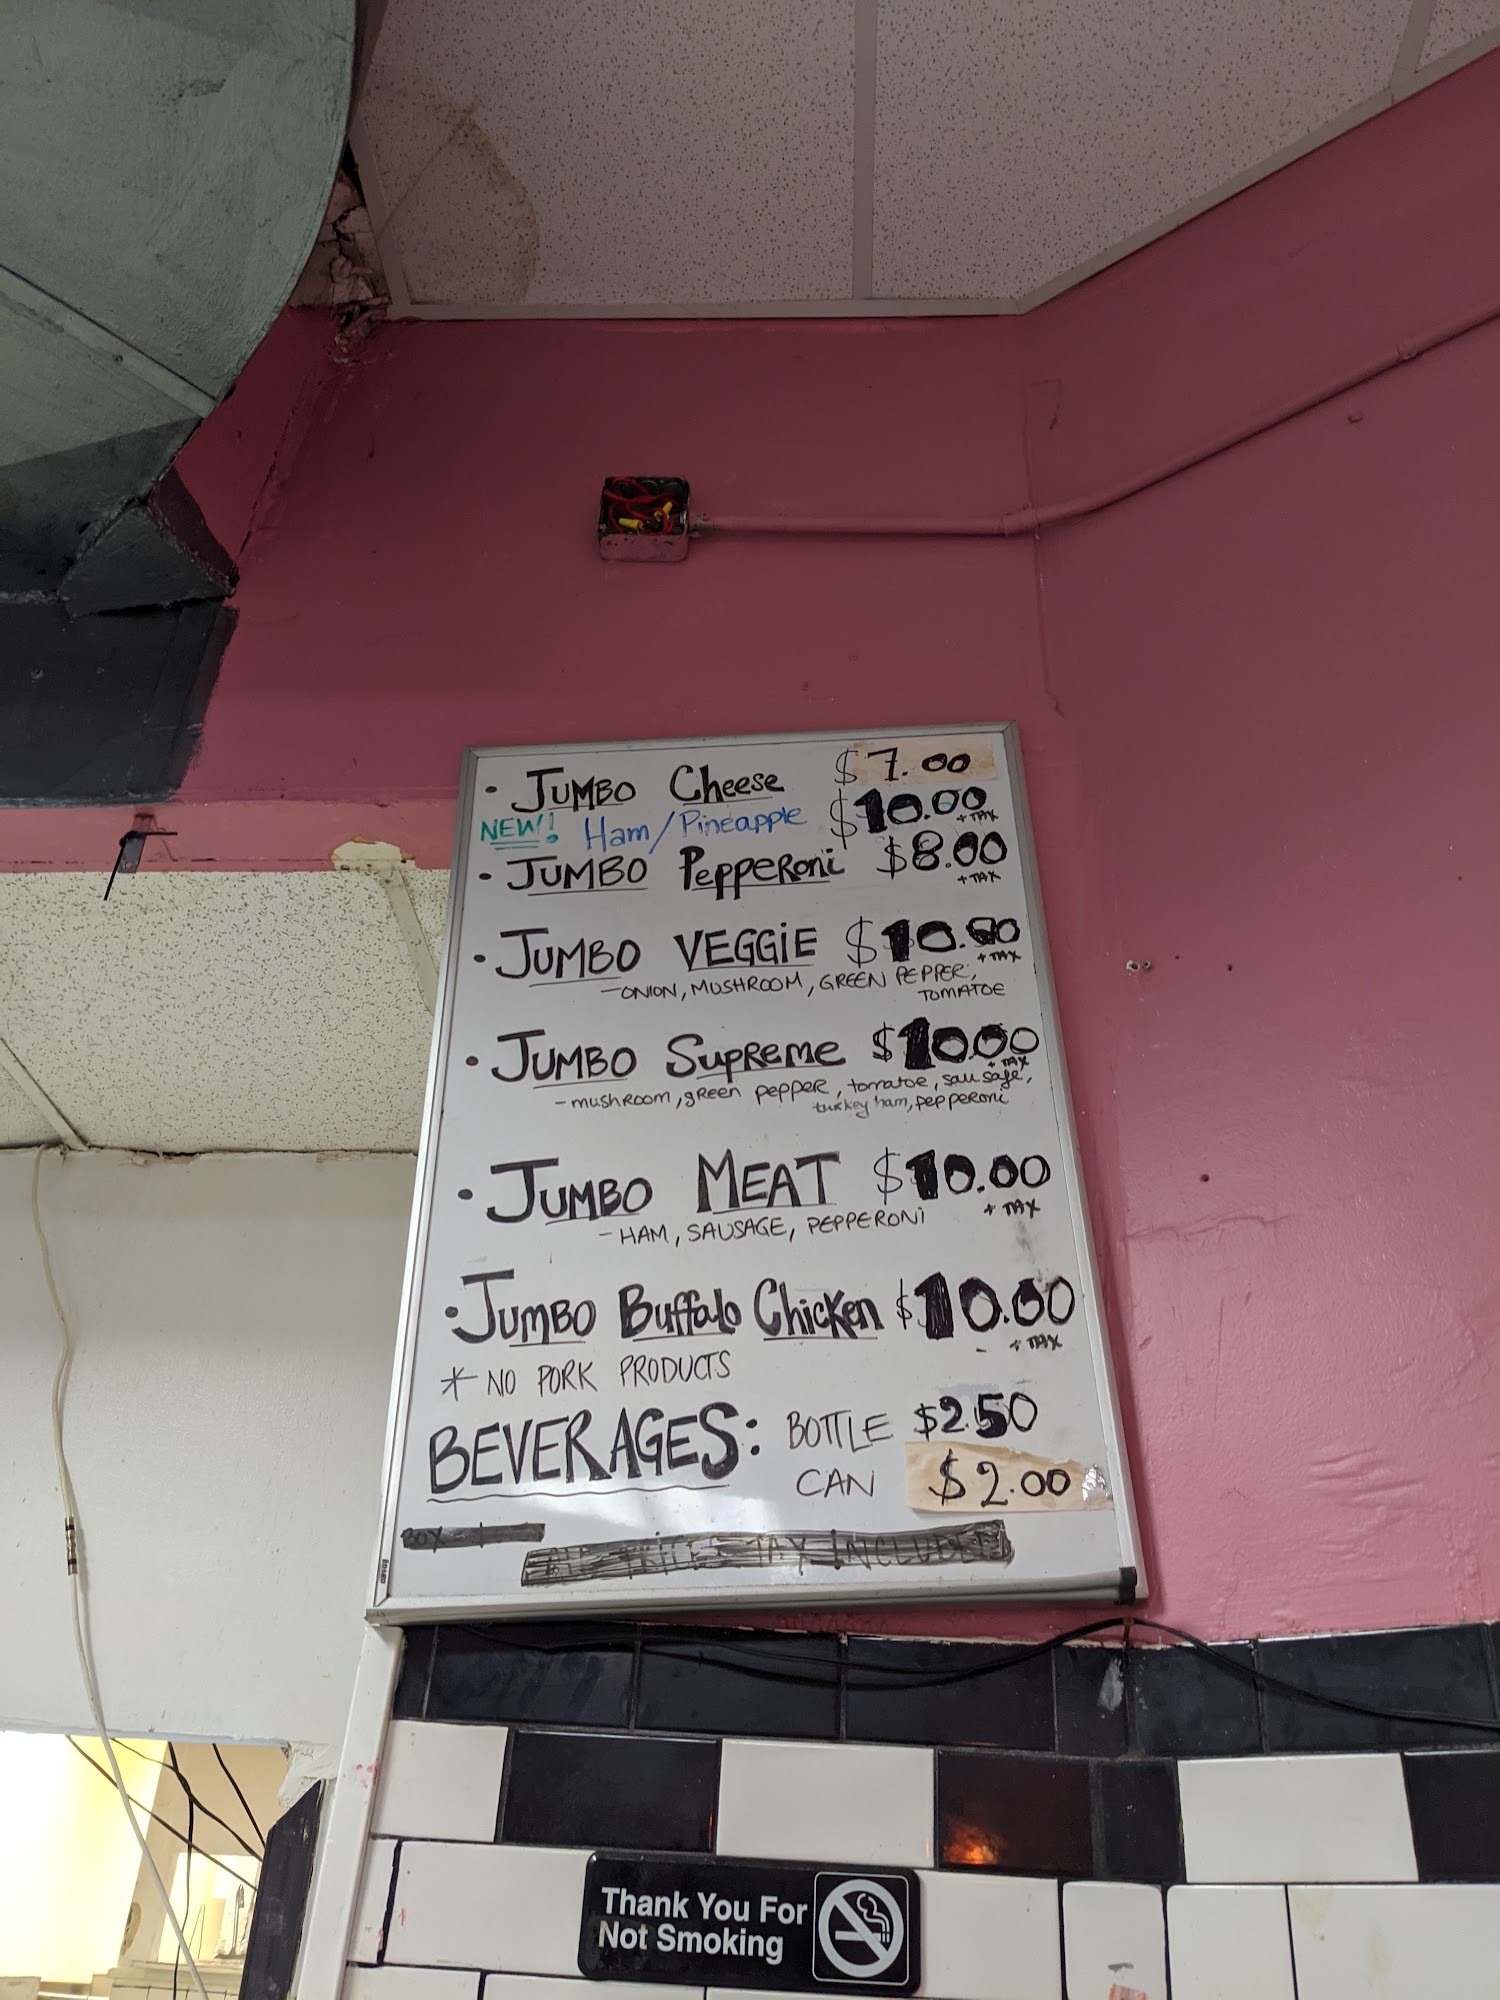 • JUMBO Cheese $7.00
NEW! Ham/Pineapple $10.00 + TAX
• JUMBO Pepperoni $8.00 + TAX
• JUMBO VEGGiE $10.00 + TAX
- ONION, MUSHROOM, GREEN PEPPER,
TOMATOE
• JUMBO SUPREME $10.00 + TAX
- mushroom, green pepper, tomatoe, sausage,
turkey ham, pepperoni
• JUMBO MEAT $10.00
+ TAX
- HAM, SAUSAGE, PEPPERONi
• JUMBO Buffalo Chicken $10.00
+ TAX
* NO PORK PRODUCTS
BEVERAGES: BOTTLE $2.50
CAN $2.00
BOX
PRICES TAX INCLUDED
Thank You For
Not Smoking